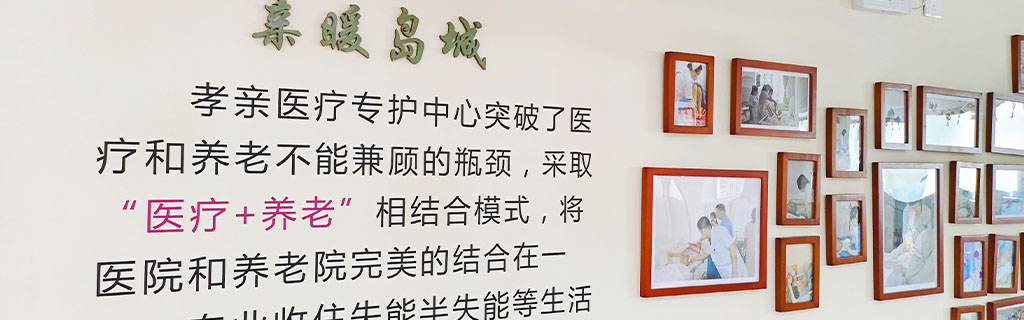 亲暖岛城
孝亲医疗专护中心突破了医
疗和养老不能兼顾的瓶颈，采取
“医疗+养老”相结合模式，将
医院和养老院完美的结合在一
专业收住失能半失能等生活